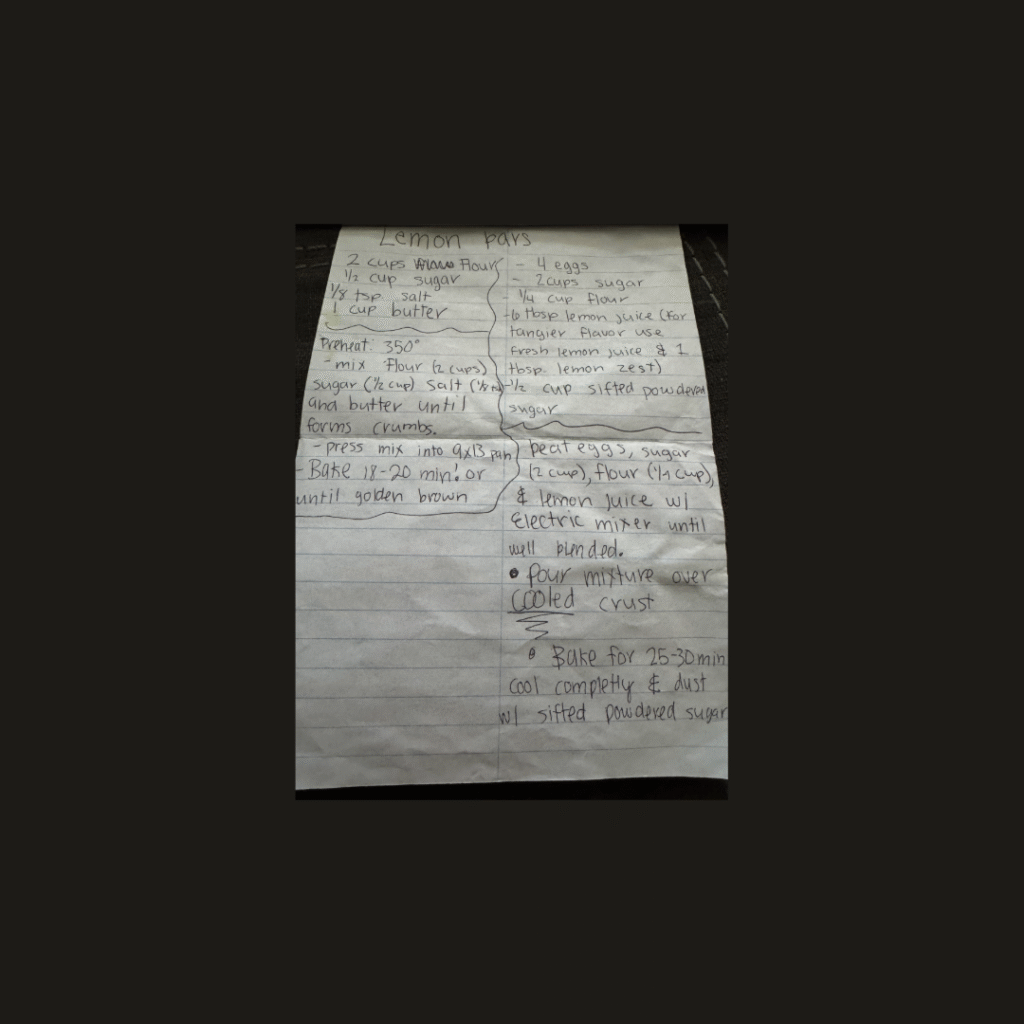 Lemon bars
2 cups Flour
1/2 cup sugar
1/8 tsp salt
1 cup butter
Preheat 350°
- mix flour (2 cups)
sugar (1/2 cup) salt (1/8
and butter until
forms crumbs.
- press mix into 9x13 pan
- Bake 18-20 min! or
until golden brown
- 4 eggs
- 2 cups sugar
- 1/4 cup flour
- 6 tbsp lemon juice (for
tangier flavor use
fresh lemon juice & 1
tbsp lemon zest)
- 1/2 cup sifted powdered
sugar
beat eggs, sugar
(2 cup), flour (1/4 cup),
& lemon juice w/
Electric mixer until
well blended.
• Pour mixture over
cooled crust
• Bake for 25-30 min
cool completly & dust
w/ sifted powdered sugar